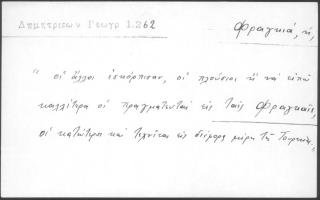 Δημητριεων Γεωγρ 1.262
Φραγκιά, ἡ,
" οἱ ἄλλοι ἐσκόρπισαν, οἱ πλούσιοι ἢ νὰ εἰπῶ
καλλίτερα οἱ πραγματευταὶ εἰς ταῖς Φραγκιαῖς,
οἱ κατώτεροι καὶ τεχνῖται εἰς διάφορα μέρη τῆς Τουρκίας.